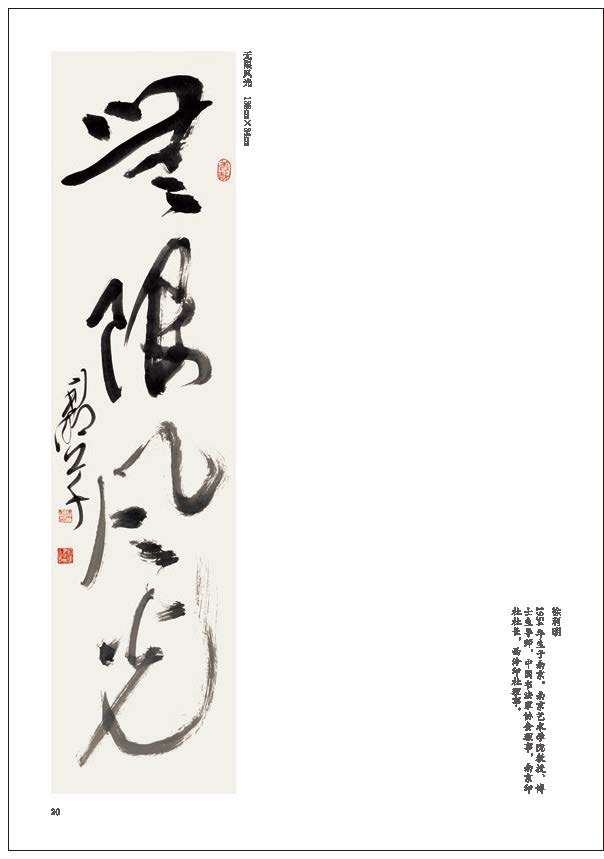 無限风光
无限风光 136cm×34cm
徐利明
1954 年生于南京。南京艺术学院教授、博
士生导师，中国书法家协会理事，南京印
社社长，西泠印社理事。
20